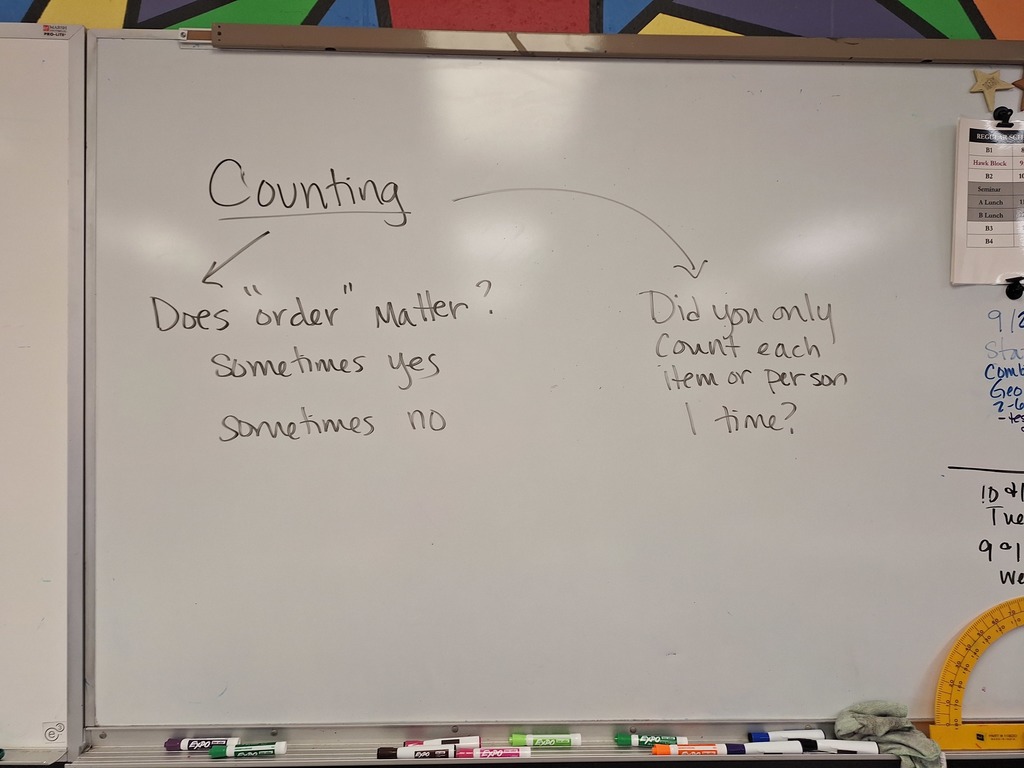 Counting
Does "order" matter?
sometimes yes
sometimes no
Did you only
count each
item or person
1 time?
REGULAR SCH
B1
Hawk Block
B2
Seminar
A Lunch
B Lunch
B3
B4
EXPO
EXPO
EXPO
EXPO
EXPO
EXPO
EXPO